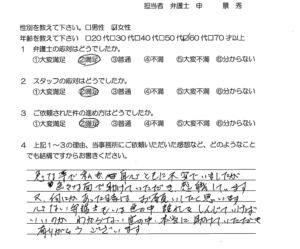 担当者 弁護士 申 景秀
性別を教えて下さい。□男性 ☑女性
年齢を教えて下さい □20代□30代□40代□50代☑60代□70才以上
1 弁護士の応対はどうでしたか。
①大変満足 ②満足 ③普通 ④不満 ⑤大変不満 ⑥分からない
2 スタッフの応対はどうでしたか。
①大変満足 ②満足 ③普通 ④不満 ⑤大変不満 ⑥分からない
3 ご依頼された件の進め方はどうでしたか。
①大変満足 ②満足 ③普通 ④不満 ⑤大変不満 ⑥分からない
4 上記1~3の理由、当事務所にご依頼いただいた感想など、どのようなこと
でも結構ですからお書きください。
ともに不安でいましたが
色々な面で助けていただき、感謝しています
又、何にかあった時は、お願いしたいと思います
本当に助けていただき
ありがとうございます